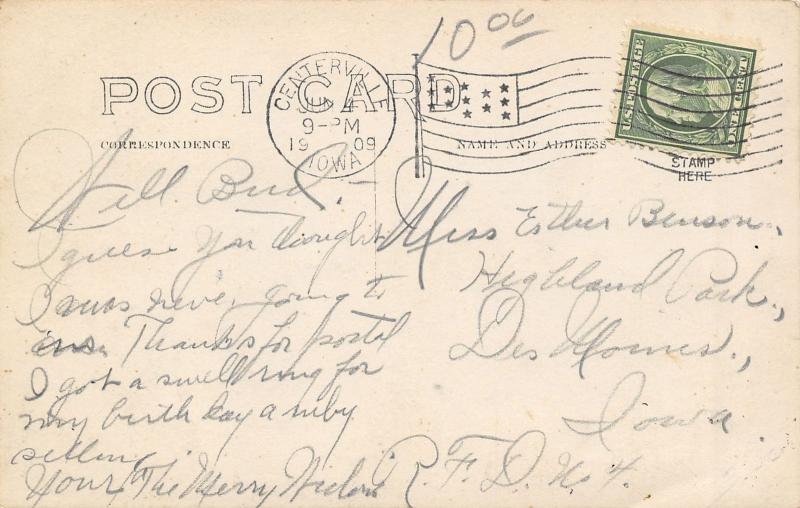 10 00
POST CARD
CENTERVILLE
JUN
9-PM
19 09
IOWA
U.S. POSTAGE
ONE CENT
STAMP
HERE
CORRESPONDENCE
NAME AND ADDRESS
Well Bud, -
I guess You thought
I was never going to
ans. Thanks for postal
I got a swell ring for
my birthday a ruby
setting.
Yours "The Merry Widow"
Miss Esther Benson,
Highland Park,
Des Moines,
Iowa
R. F. D. No 4.